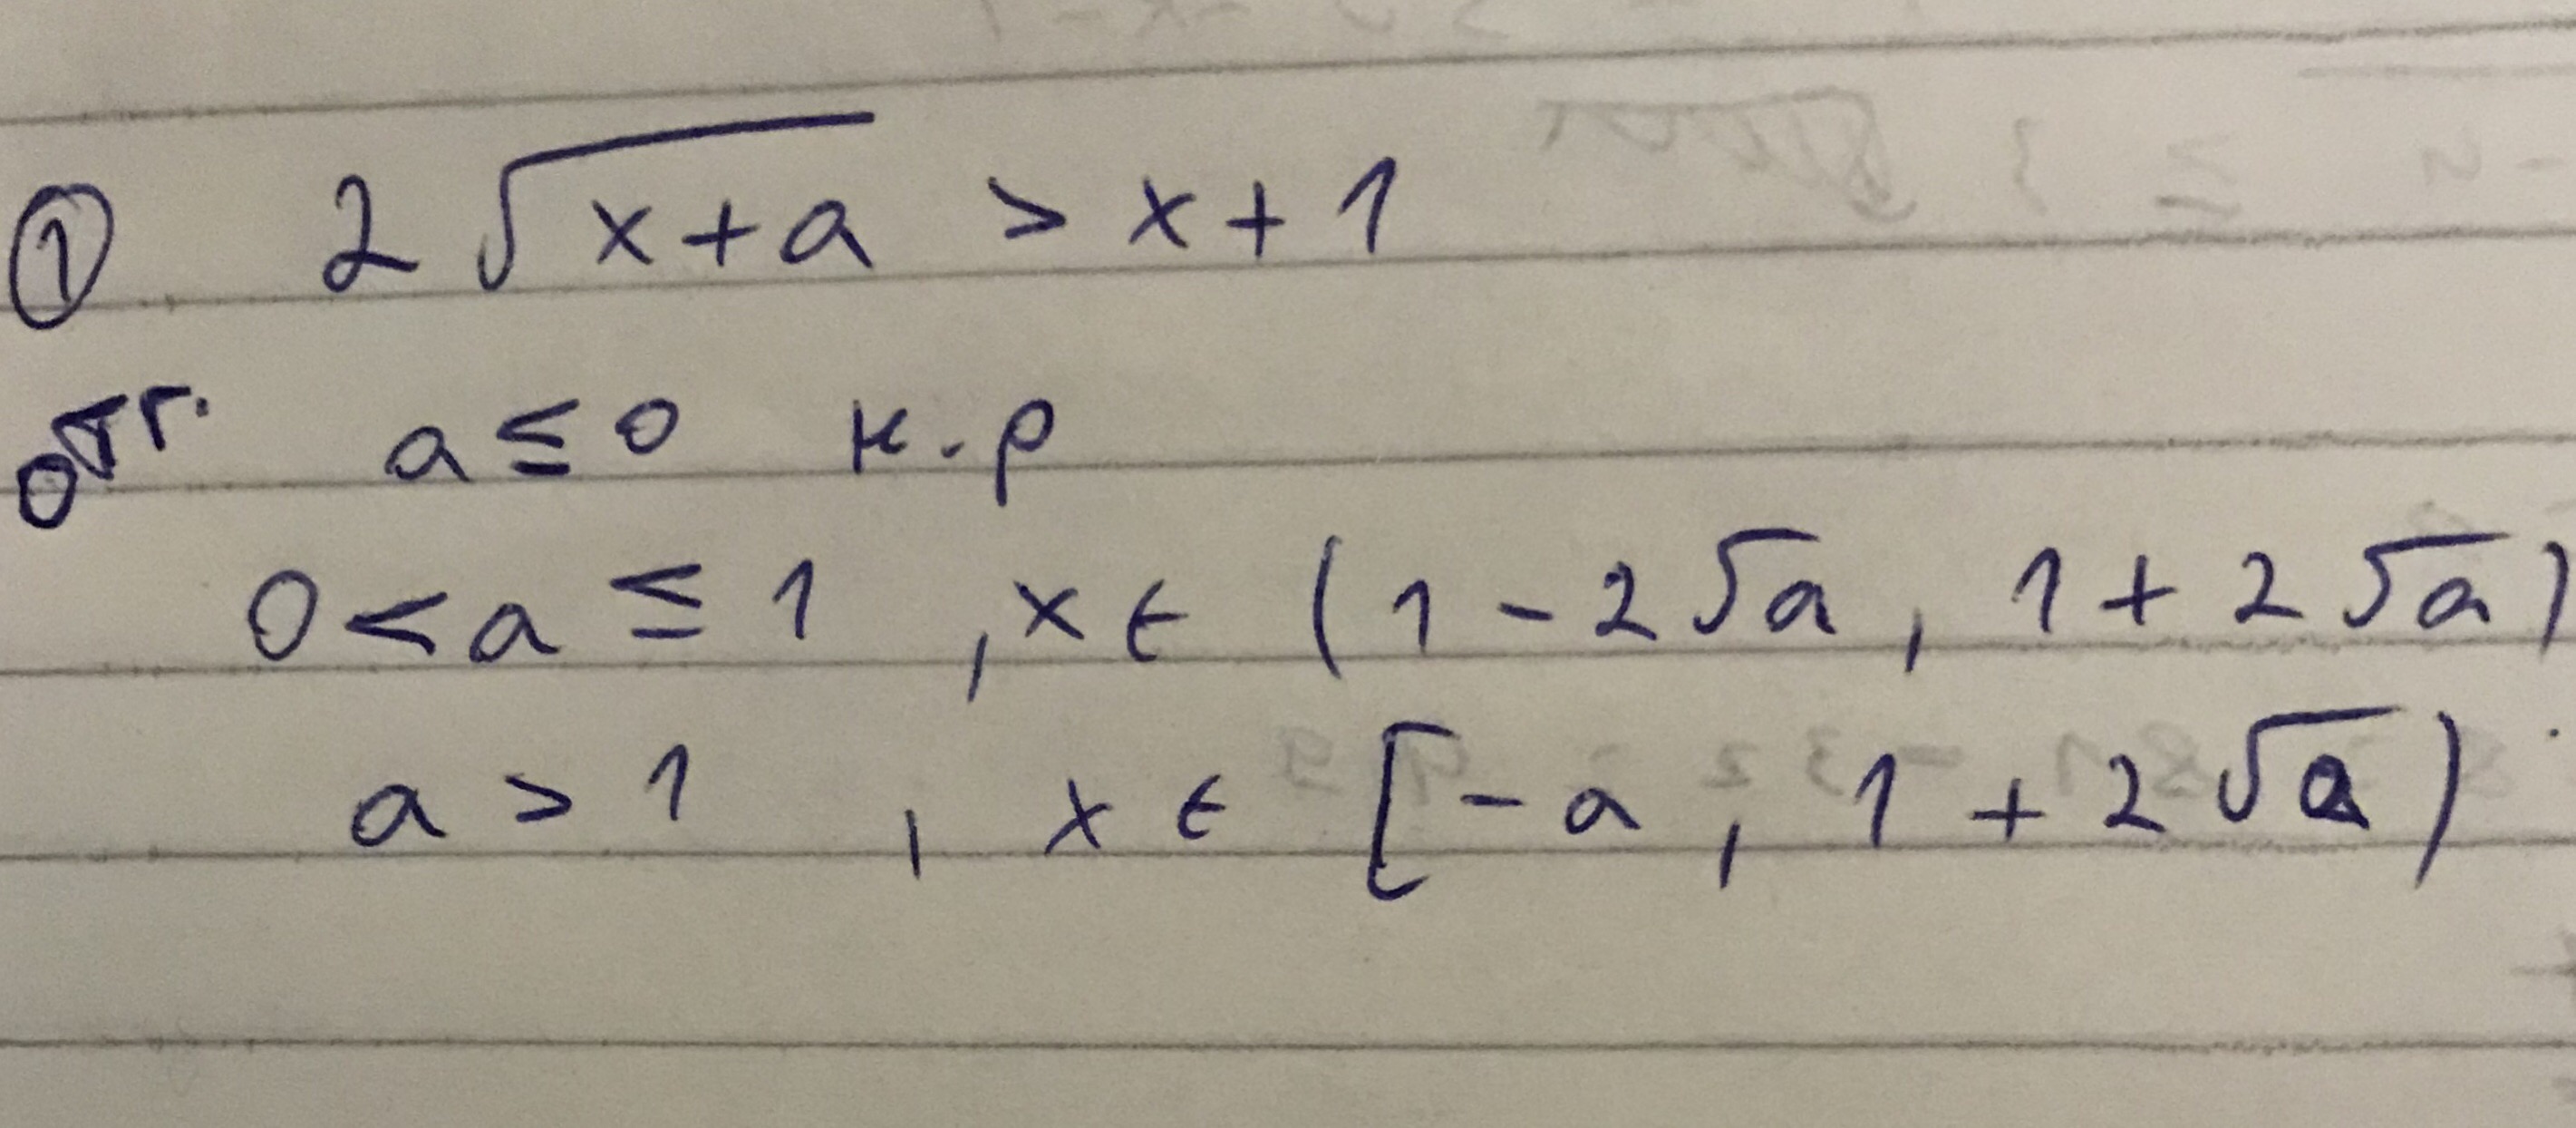 ① 2√(x+a) > x+1
отг. a ≤ 0 н.р
0 < a ≤ 1 , x ∈ (1 - 2√a , 1 + 2√a)
a > 1 , x ∈ [-a , 1 + 2√a)